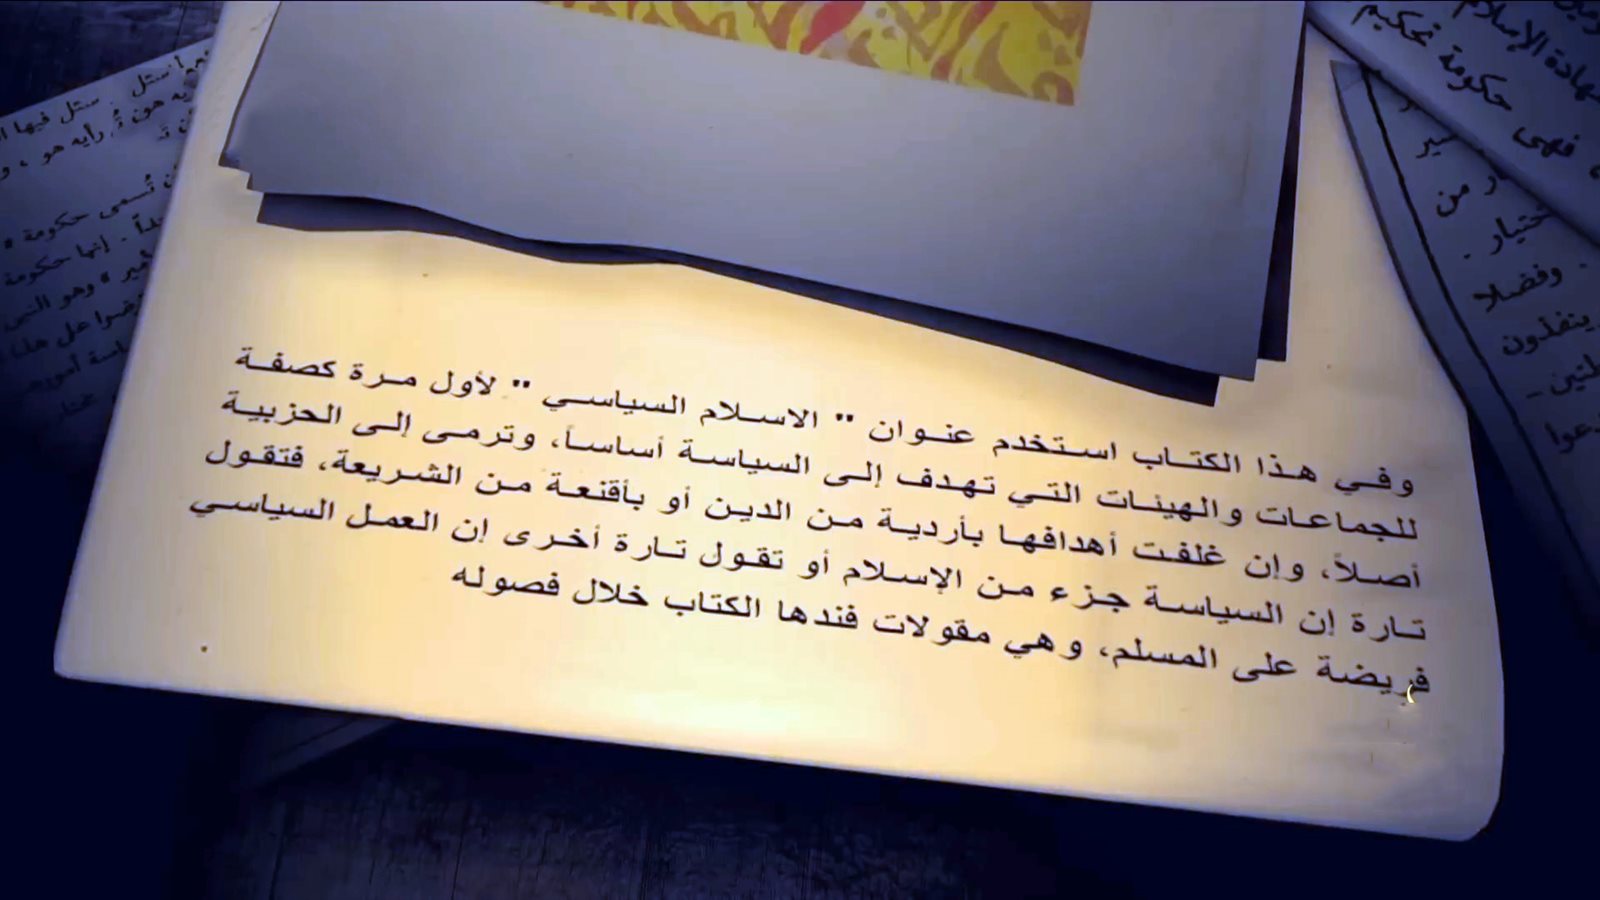 وفي هذا الكتاب استخدم عنوان " الاسلام السياسي " لأول مرة كصفة
للجماعات والهيئات التي تهدف إلى السياسة أساساً، وترمى إلى الحزبية
أصلاً، وإن غلفت أهدافها بأردية من الدين أو بأقنعة من الشريعة، فتقول
تارة إن السياسة جزء من الإسلام أو تقول تارة أخرى إن العمل السياسي
فريضة على المسلم، وهي مقولات فندها الكتاب خلال فصوله
رأيه هو ، و
تُسمى حكومة "
إنها حكومة
" وهو النبى
على هذا
هادة الإسلام
فهى حكومة تحكيم
من
وفضلا
ينفذون